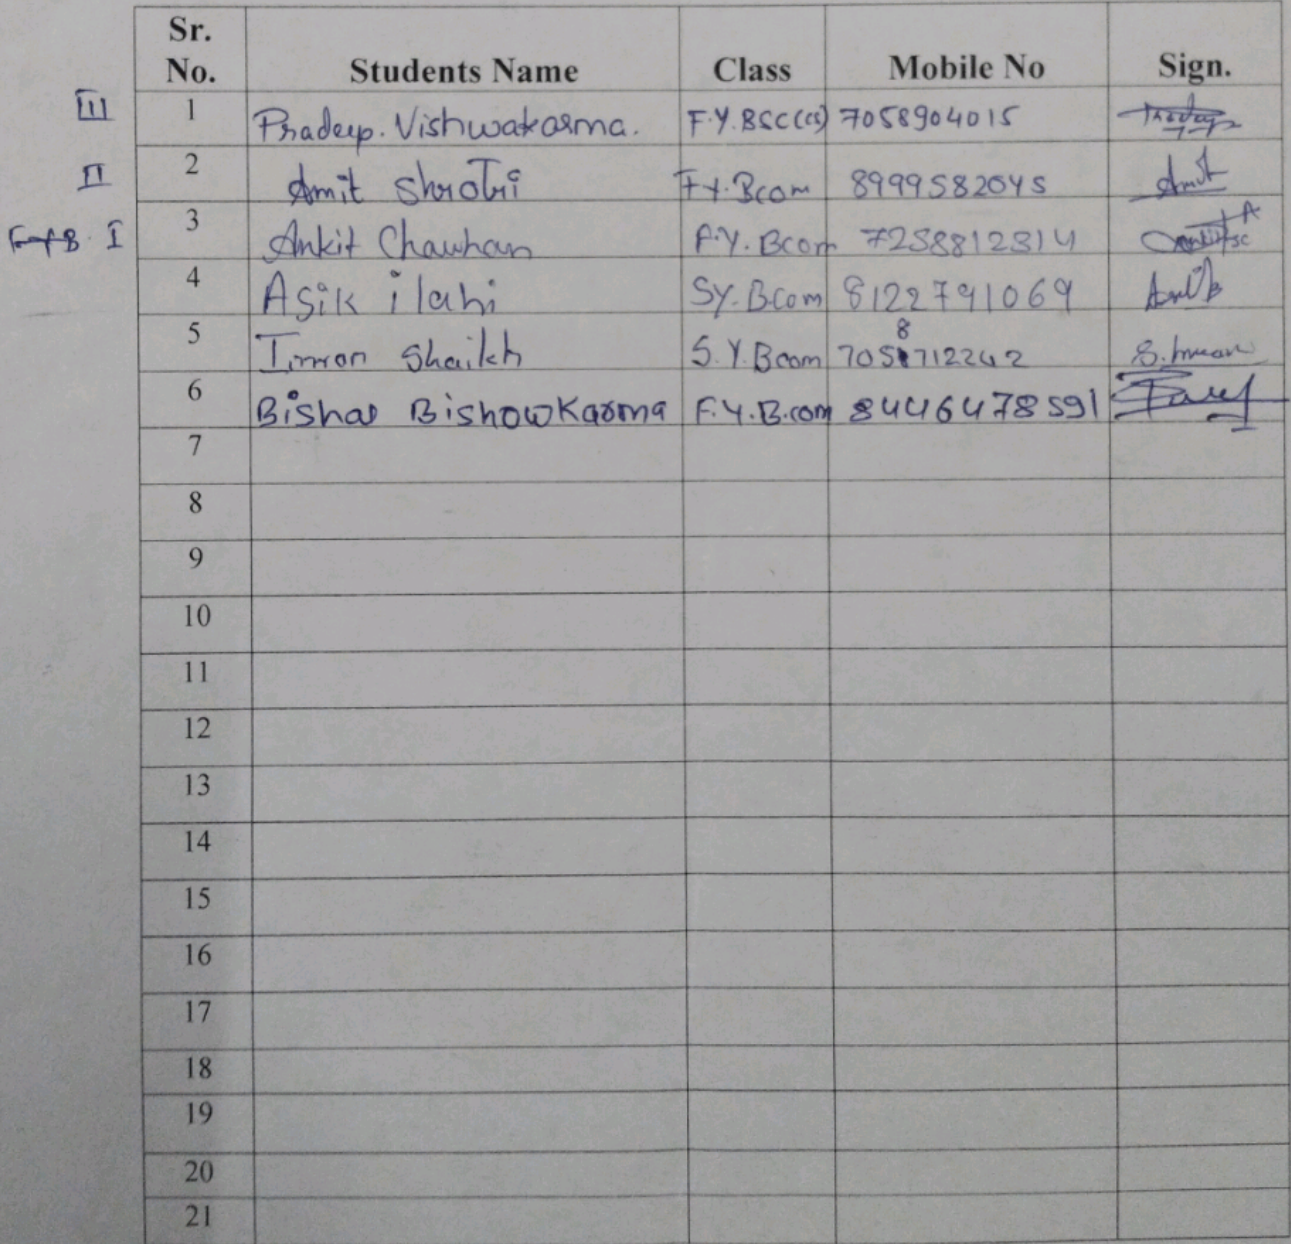 Sr. No. Students Name Class Mobile No Sign.
III 1 Pradeep. Vishwakarma. F.Y.BSC(CS) 7058904015
II 2 Amit Shrotri F.Y.Bcom 8999582045 Amit
I 3 Ankit Chauhan F.Y.Bcom 7258812314
4 Asik ilahi SY.B.Com 8122791069
5 Imran Shaikh S.Y.Bcom 7058712242 S.Imran
6 Bishal BishowKarma F.Y.B.com 8446478591
7
8
9
10
11
12
13
14
15
16
17
18
19
20
21